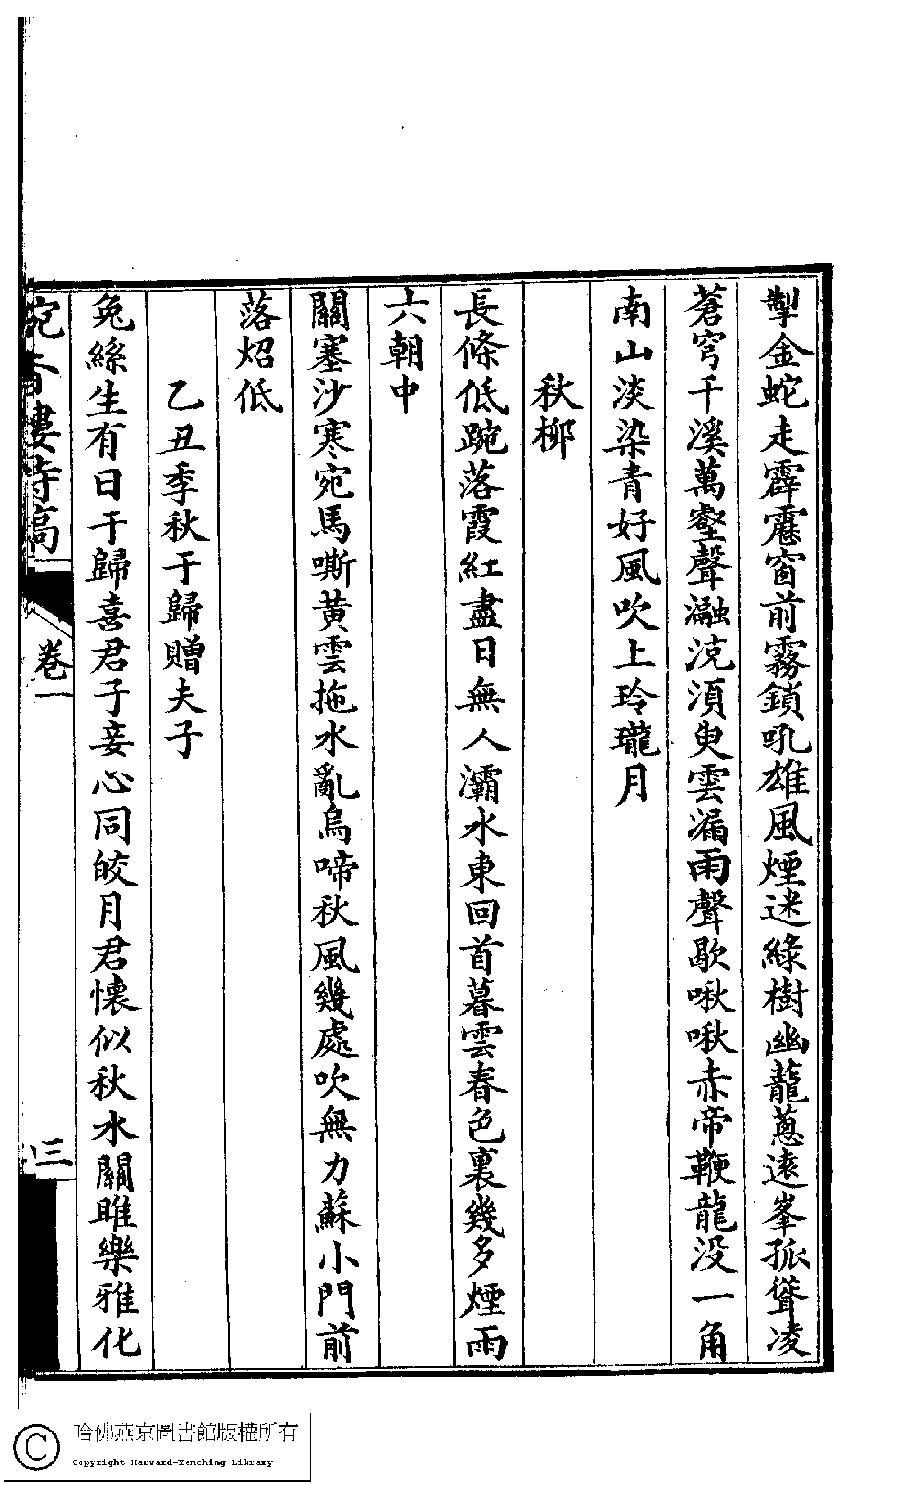 掣金蛇走霹靂窗前霧鎖吼雄風煙迷綠樹幽蘢蔥遠峯孤聳凌
蒼穹千溪萬壑聲瀜浣湏臾雲漏雨聲歇啾啾赤帝鞭龍没一角
南山淡染青好風吹上玲瓏月
秋栁
長條低踠落霞紅盡日無人灞水東回首暮雲春色裏幾多煙雨
六朝中
關塞沙寒宛馬嘶黄雲拖水亂烏啼秋風幾處吹無力蘇小門前
落炤低
乙丑季秋于歸贈夫子
兔絲生有日于歸喜君子妾心同皎月君懷似秋水關雎樂雅化
香樓詩稿
卷一
三
哈佛燕京圖書館版權所有
Copyright Harvard-Yenching Library